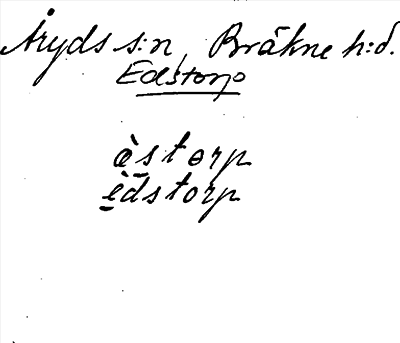 Åryds s:n, Bräkne h:d.
Edstorp
èstorp
èdstorp